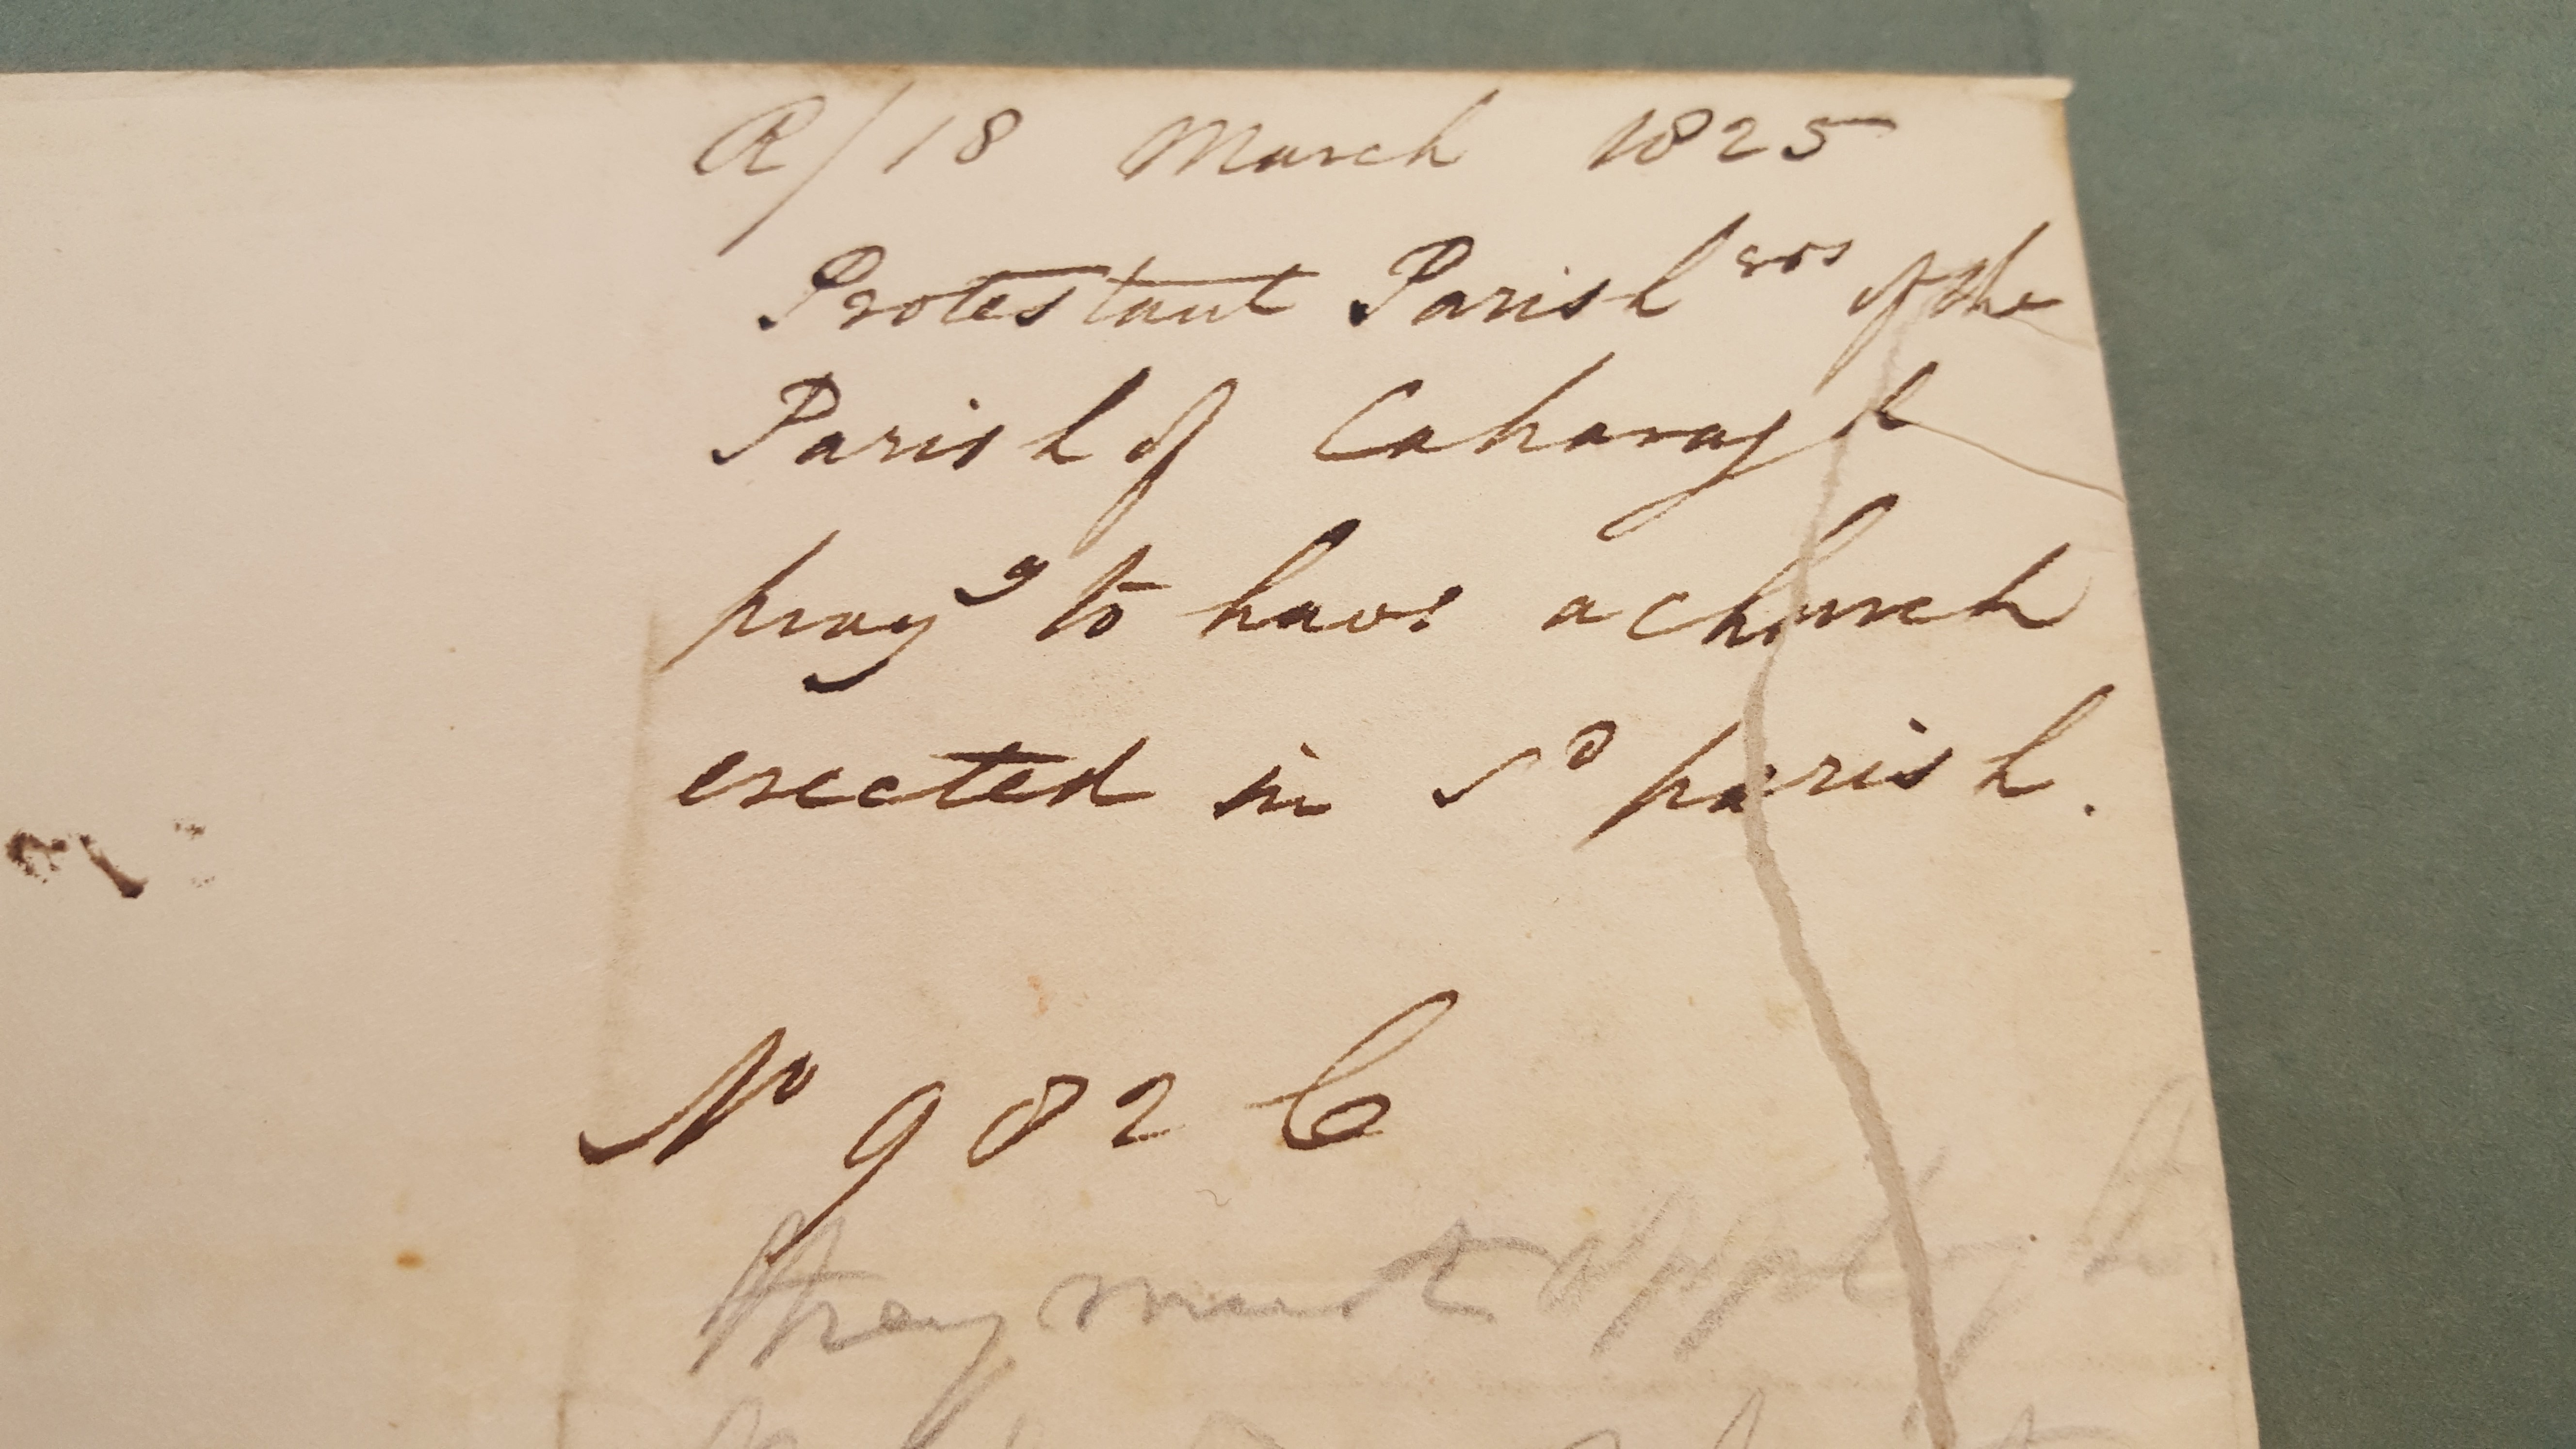 R/18 March 1825
Protestant Parishrs of the
Parish of Caharagh
prayg to have a church
erected in Sd parish.
No 982 C
they must apply to